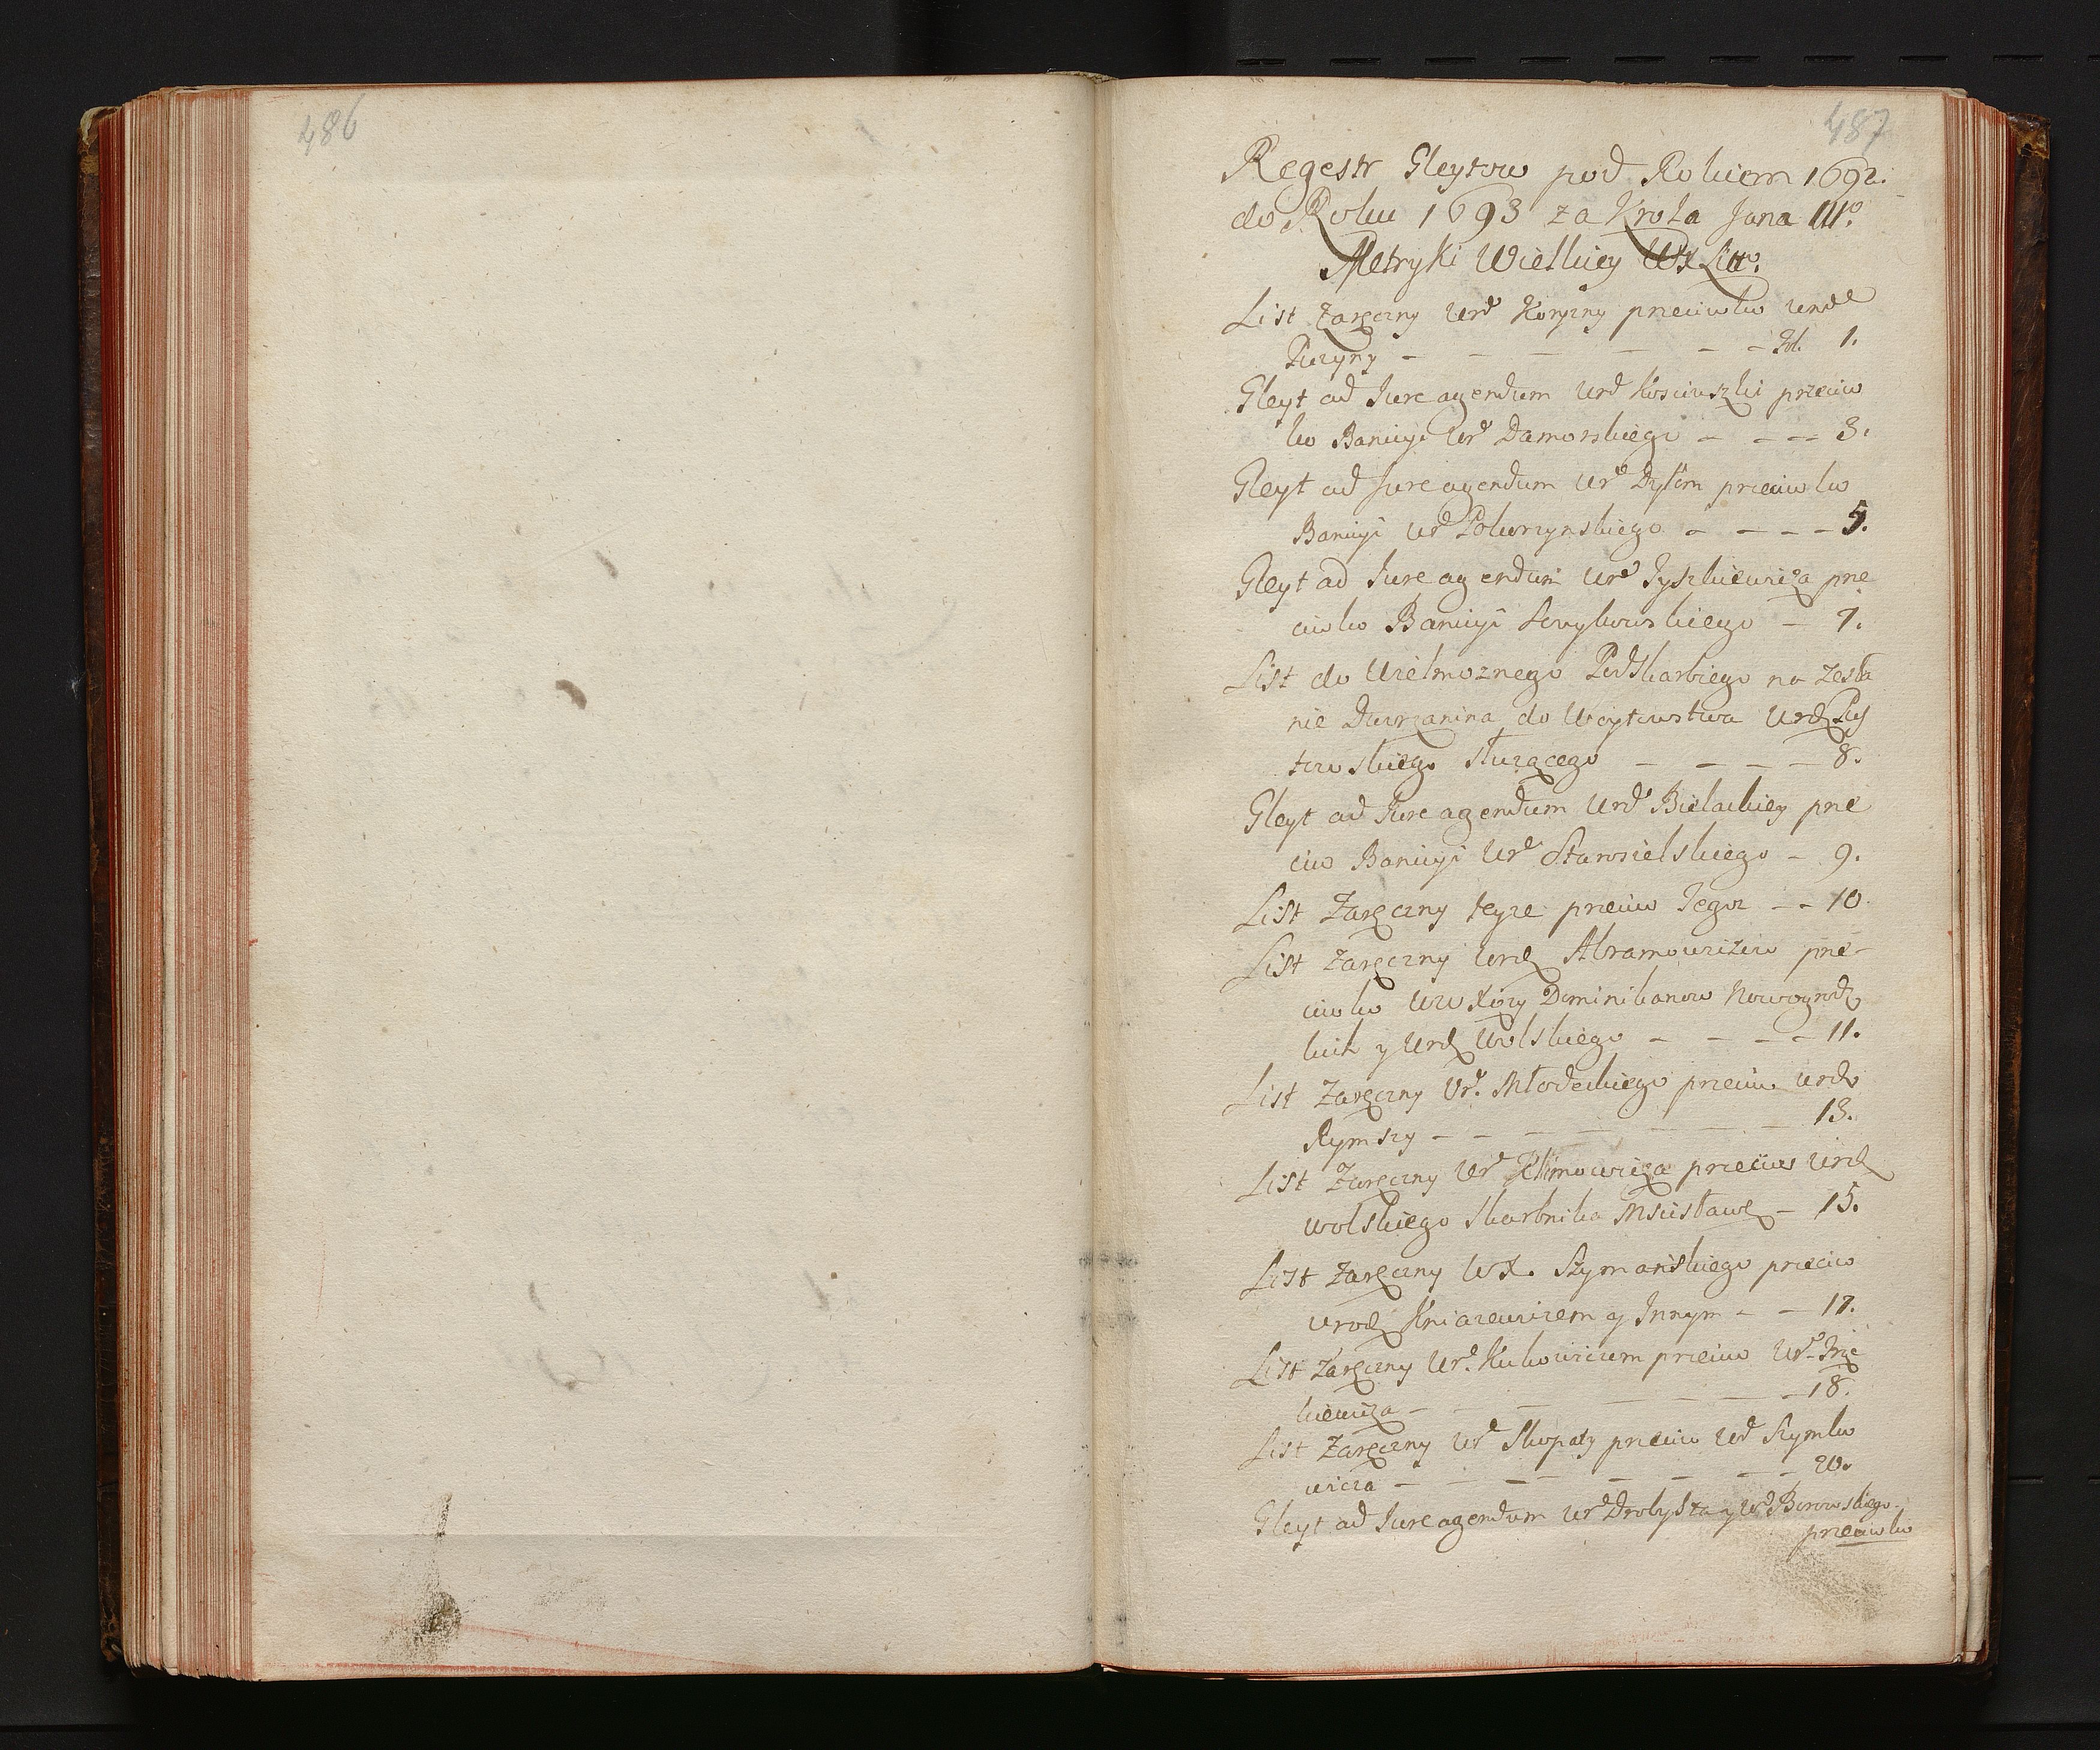 486
487
Regestr Gleytow pod Rokiem 1692.
do Roku 1693 za Krola Jana III.º
Metryki Wielkiey WX Litt.º
List Zaręczny Urd Koryzny przeciwko Urodz
Puzyny – – – – – – Fol. 1.
Gleyt ad Jure agendum Urd Kosciuszki przeciw
ko Banicyi Ur. Damorskiego – – – – 3.
Gleyt ad Jure agendum Ur. przeciwko
Banicyi Ur. – – – – 5.
Gleyt ad Jure agendum Ur. Tyszkiewicza prze
ciwko Banicyi – 7.
List do Wielmoznego Podskarbiego na zesła
nie Dworzanina do Woytowstwa Urd Pus
towskiego słuzącego – – – – 8.
Gleyt ad Jure agendum Urd Bielackiey prze
ciw Banicyi Ur. Starosielskiego – 9.
List Zaręczny Jeyze przeciw Tegoz – – 10.
List Zaręczny Urd Abramowiczow prze-
ciwko WW Xięzy Dominikanow Nowogrodz
kich y Urd Wolskiego – – – – 11.
List Zaręczny Ur. Młodeckiego przeciw Urdz
Rymszy – – – – – – – 13.
List Zaręczny Ur. Klimowicza przeciw Urd
Wolskiego Skarbnika Mscisławs – 15.
List Zaręczny WX. Szymanskiego przeciw
Urodz Kniazewiczem y Innym – – 17.
List Zaręczny Ur. Kukowiczem przeciw Ur.
kiewicza – – – – – – 18.
List Zaręczny Ur. Skopaty przeciw Urd Szymko
wicza – – – – – – – 20.
Gleyt ad Jure agendum Ur. Drobysza y Ur. Borowskiego
przeciwko